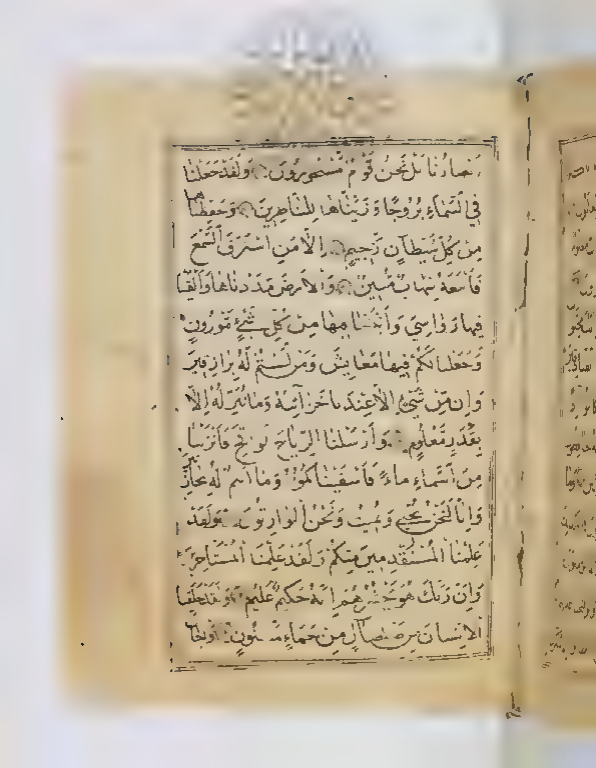 أبصارنا بل نحن قوم مسحورون ولقد جعلنا
في السماء بروجا وزيناها للناظرين وحفظناها
من كل شيطان رجيم إلا من استرق السمع
فأتبعه شهاب مبين والأرض مددناها وألقينا
فيها رواسي وأنبتنا فيها من كل شيء موزون
وجعلنا لكم فيها معايش ومن لستم له برازقين
وإن من شيء إلا عندنا خزائنه وما ننزله إلا
بقدر معلوم وأرسلنا الرياح لواقح فأنزلنا
من السماء ماء فأسقيناكموه وما أنتم له بخازنين
وإنا لنحن نحيي ونميت ونحن الوارثون ولقد
علمنا المستقدمين منكم ولقد علمنا المستأخرين
وإن ربك هو يحشرهم إنه حكيم عليم ولقد خلقنا
الإنسان من صلصال من حمإ مسنون والجان